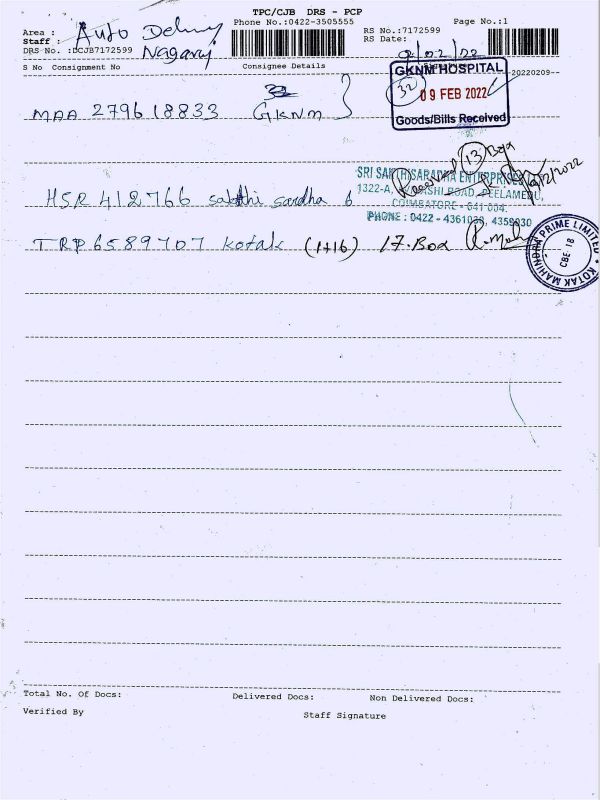 TPC/CJB DRS - PCP
Phone No.:0422-3505555 Page No.:1
Area : Auto RS No.:7172599
Staff : Nagaraj RS Date: 9/02/22
DRS No. :DCJB7172599
S No Consignment No Consignee Details --20220209--
GKNM HOSPITAL
32 09 FEB 2022
Goods/Bills Received
MAA 279618833 GKNM
Received 13 Box
SRI SAKTHI SARADHA ENTERPRISES
1322-A, ROAD, PEELAMEDU,
COIMBATORE - 641 004.
PHONE : 0422 - 4361038, 4359030
HSR 412766 sakthi saradha 6
TRP6589707 kotak (1+16) 17.Box
KOTAK MAHINDRA PRIME LIMITED
CBE 18
Total No. Of Docs: Delivered Docs: Non Delivered Docs:
Verified By Staff Signature